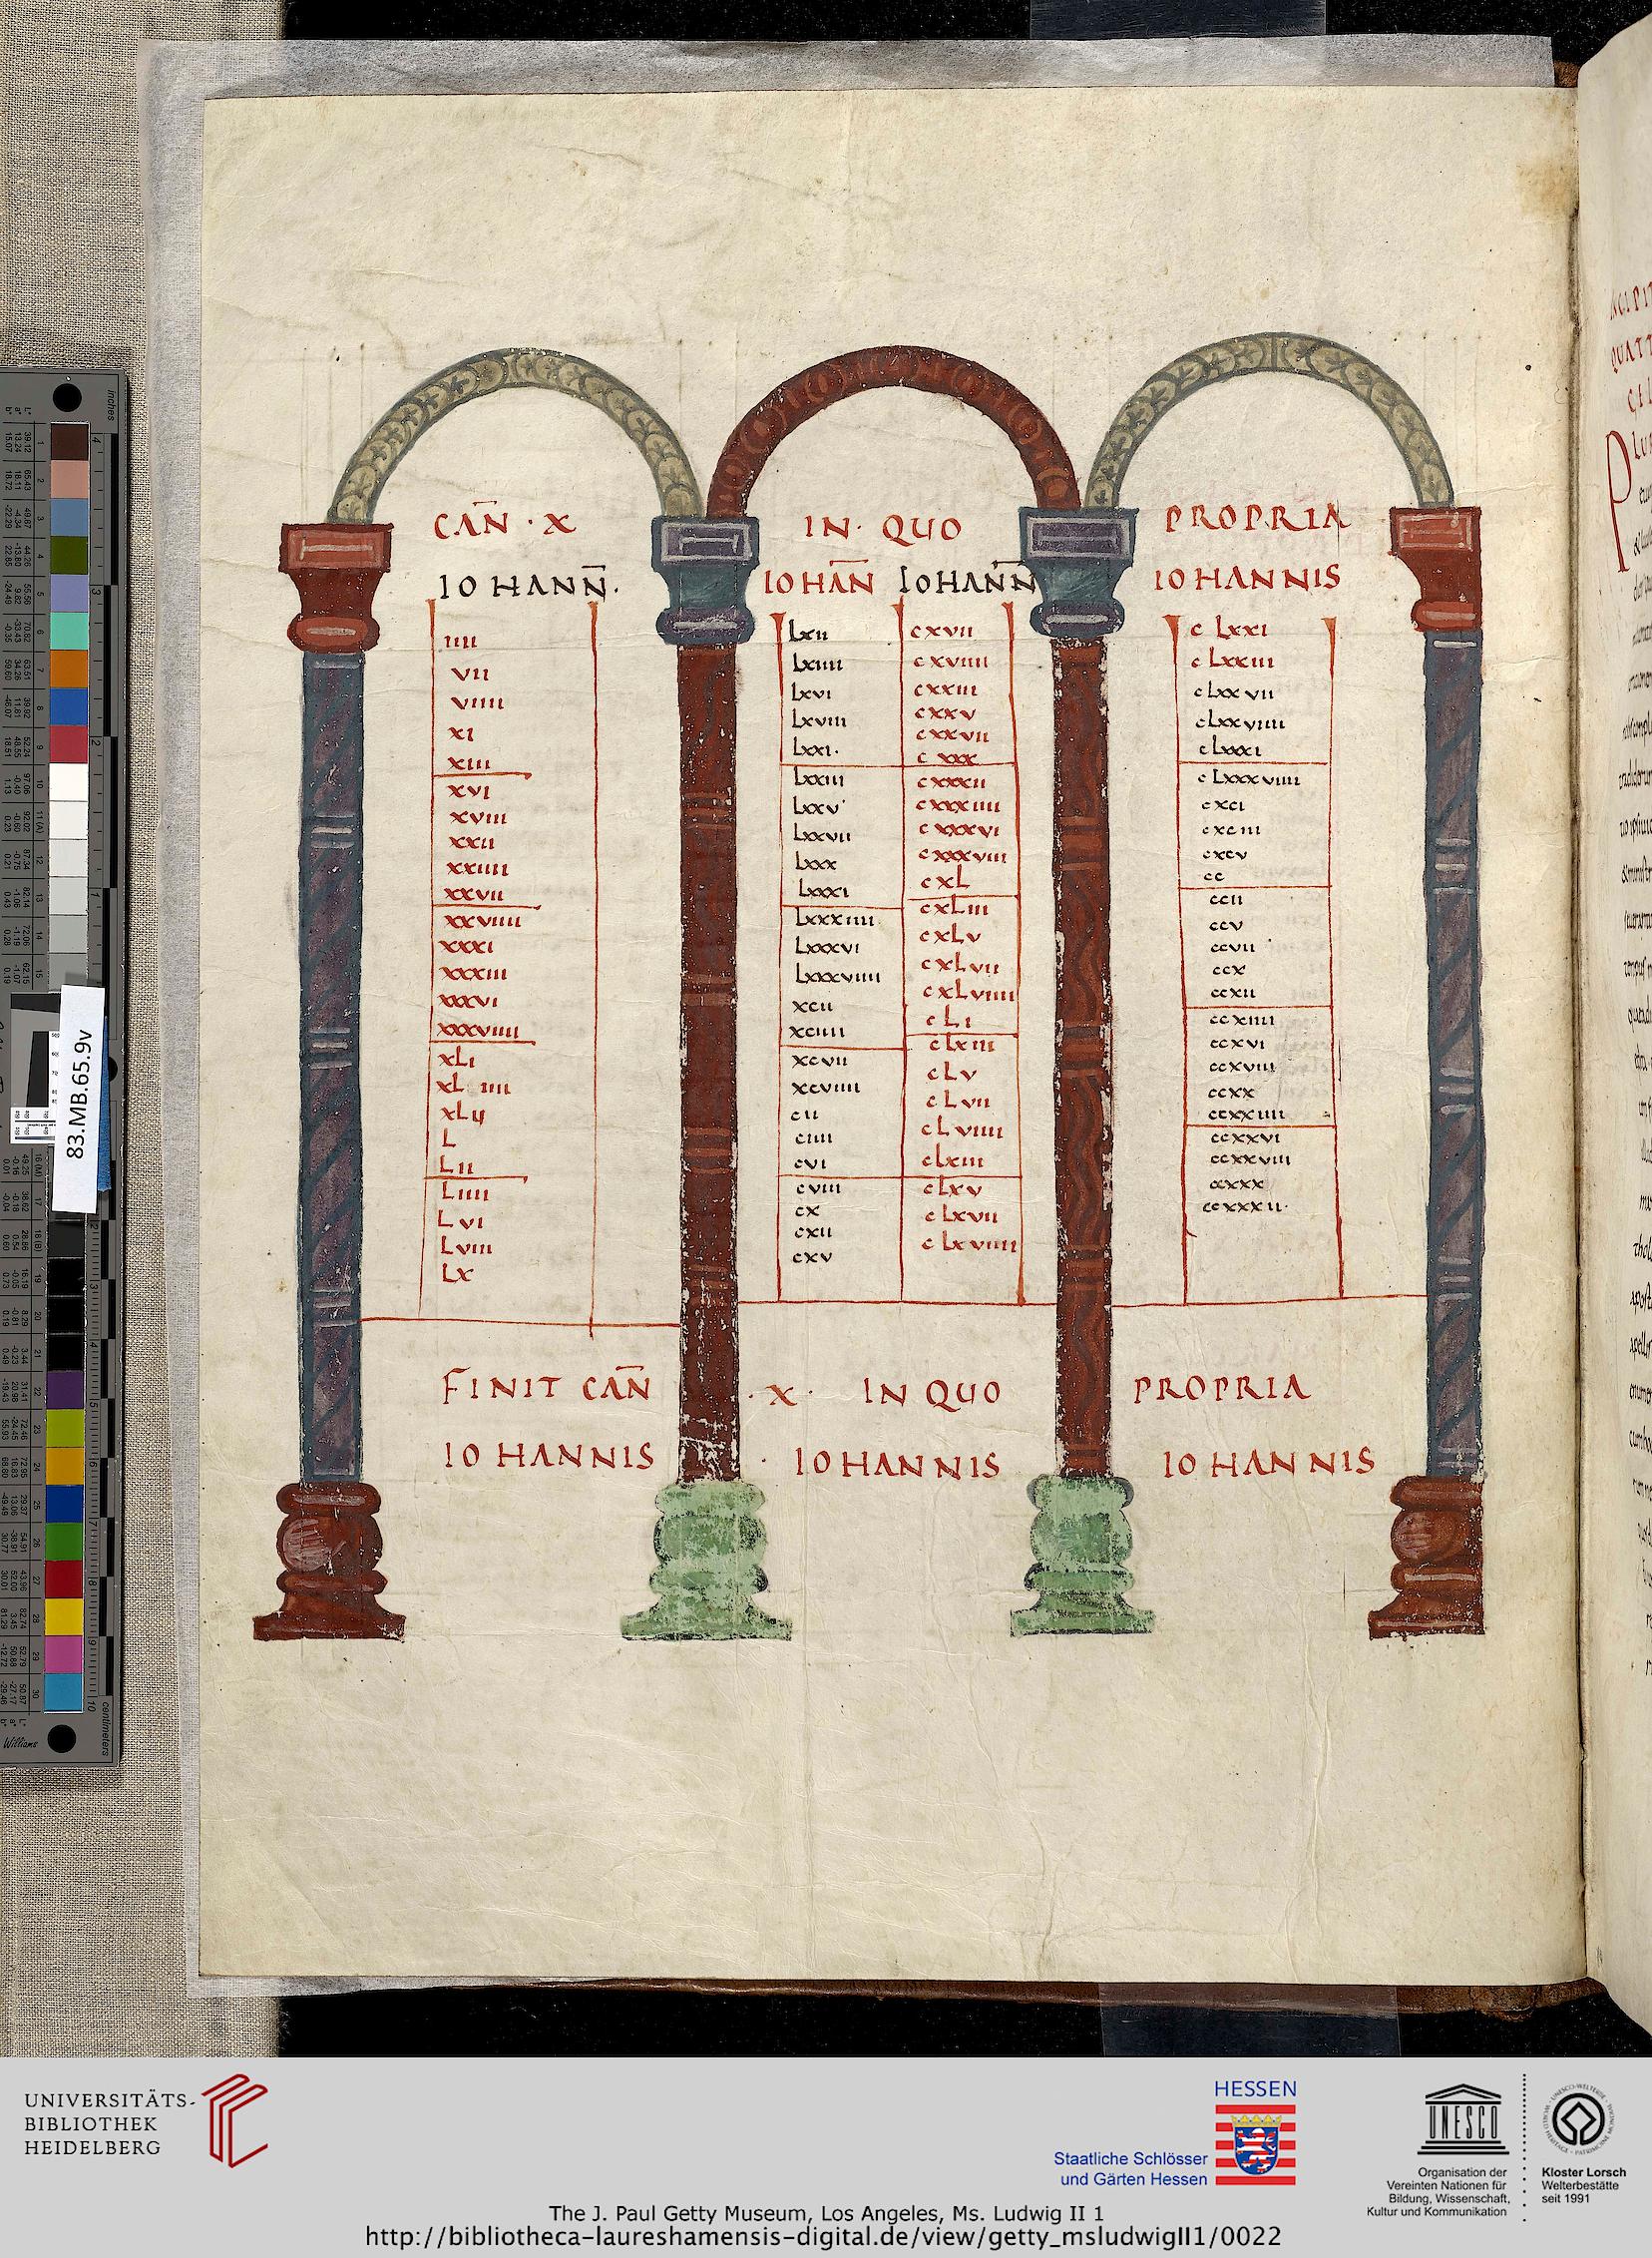 CAN̅ · X
IOHANN̅.
IIII
VII
VIIII
XI
XIII
XVI
XVIII
XXII
XXIIII
XXVII
XXVIIII
XXXI
XXXIII
XXXVI
XXXVIIII
XLI
XL IIII
L
LII
LIIII
LVI
LVIII
LX
IN · QUO
IOHAN̅ IOHAN̅N
LXII
LXIIII
LXVI
LXVIII
LXXI·
LXXIII
LXXV·
LXXVII
LXXX
LXXXI
LXXXIIII
LXXXVI
LXXXVIIII
XCII
XCIIII
XCVII
XCVIIII
CII
CIIII
CVI
CVIII
CX
CXII
CXV
CXVII
CXVIIII
CXXIII
CXXV
CXXVII
CXXX
CXXXII
CXXXIIII
CXXXVI
CXXXVIII
CXL
CXLIII
CXLV
CXLVII
CXLVIIII
CLI
CLXIII
CLV
CLVII
CLVIIII
CLXIII
CLXV
CLXVII
CLXVIIII
PROPRIA
IOHANNIS
CLXXI
CLXXIII
CLXXVII
CLXXVIIII
CLXXXI
CLXXXVIIII
CXCI
CXCIII
CXCV
CC
CCII
CCV
CCVII
CCX
CCXII
CCXIIII
CCXVI
CCXVIII
CCXX
CCXXIIII
CCXXVI
CCXXVIII
CCXXX
CCXXXII·
FINIT CAN̅ · X · IN QUO PROPRIA
IOHANNIS · IOHANNIS IOHANNIS
83.MB.65.9v
inches
centimeters
Williams
UNIVERSITÄTS-
BIBLIOTHEK
HEIDELBERG
HESSEN
Staatliche Schlösser
und Gärten Hessen
UNESCO
Organisation der
Vereinten Nationen für
Bildung, Wissenschaft,
Kultur und Kommunikation
Kloster Lorsch
Welterbestätte
seit 1991
The J. Paul Getty Museum, Los Angeles, Ms. Ludwig II 1
http://bibliotheca-laureshamensis-digital.de/view/getty_msludwigII1/0022